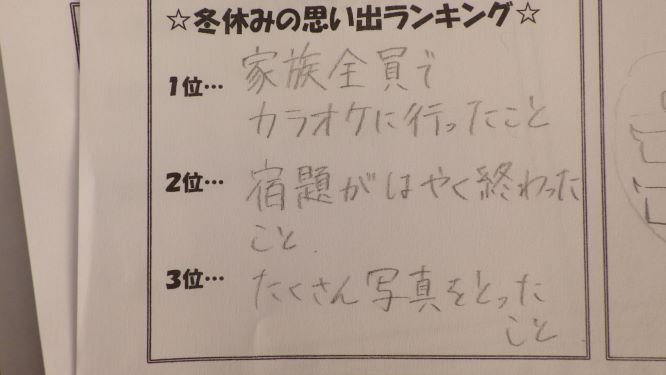 ☆冬休みの思い出ランキング☆
1位…家族全員で
カラオケに行ったこと
2位…宿題がはやく終わった
こと.
3位…たくさん写真をとった
こと